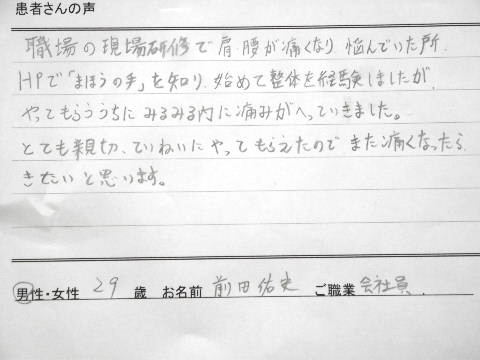 患者さんの声
職場の現場研修で肩、腰が痛くなり 悩んでいた所、
HPで「まほうの手」を知り、始めて整体を経験しましたが、
やってもらううちに みるみる内に痛みがへっていきました。
とても親切、ていねいに やって もらえたので また痛くなったら
きたい と思います。
男性・女性 29 歳 お名前 前田佑史 ご職業 会社員.